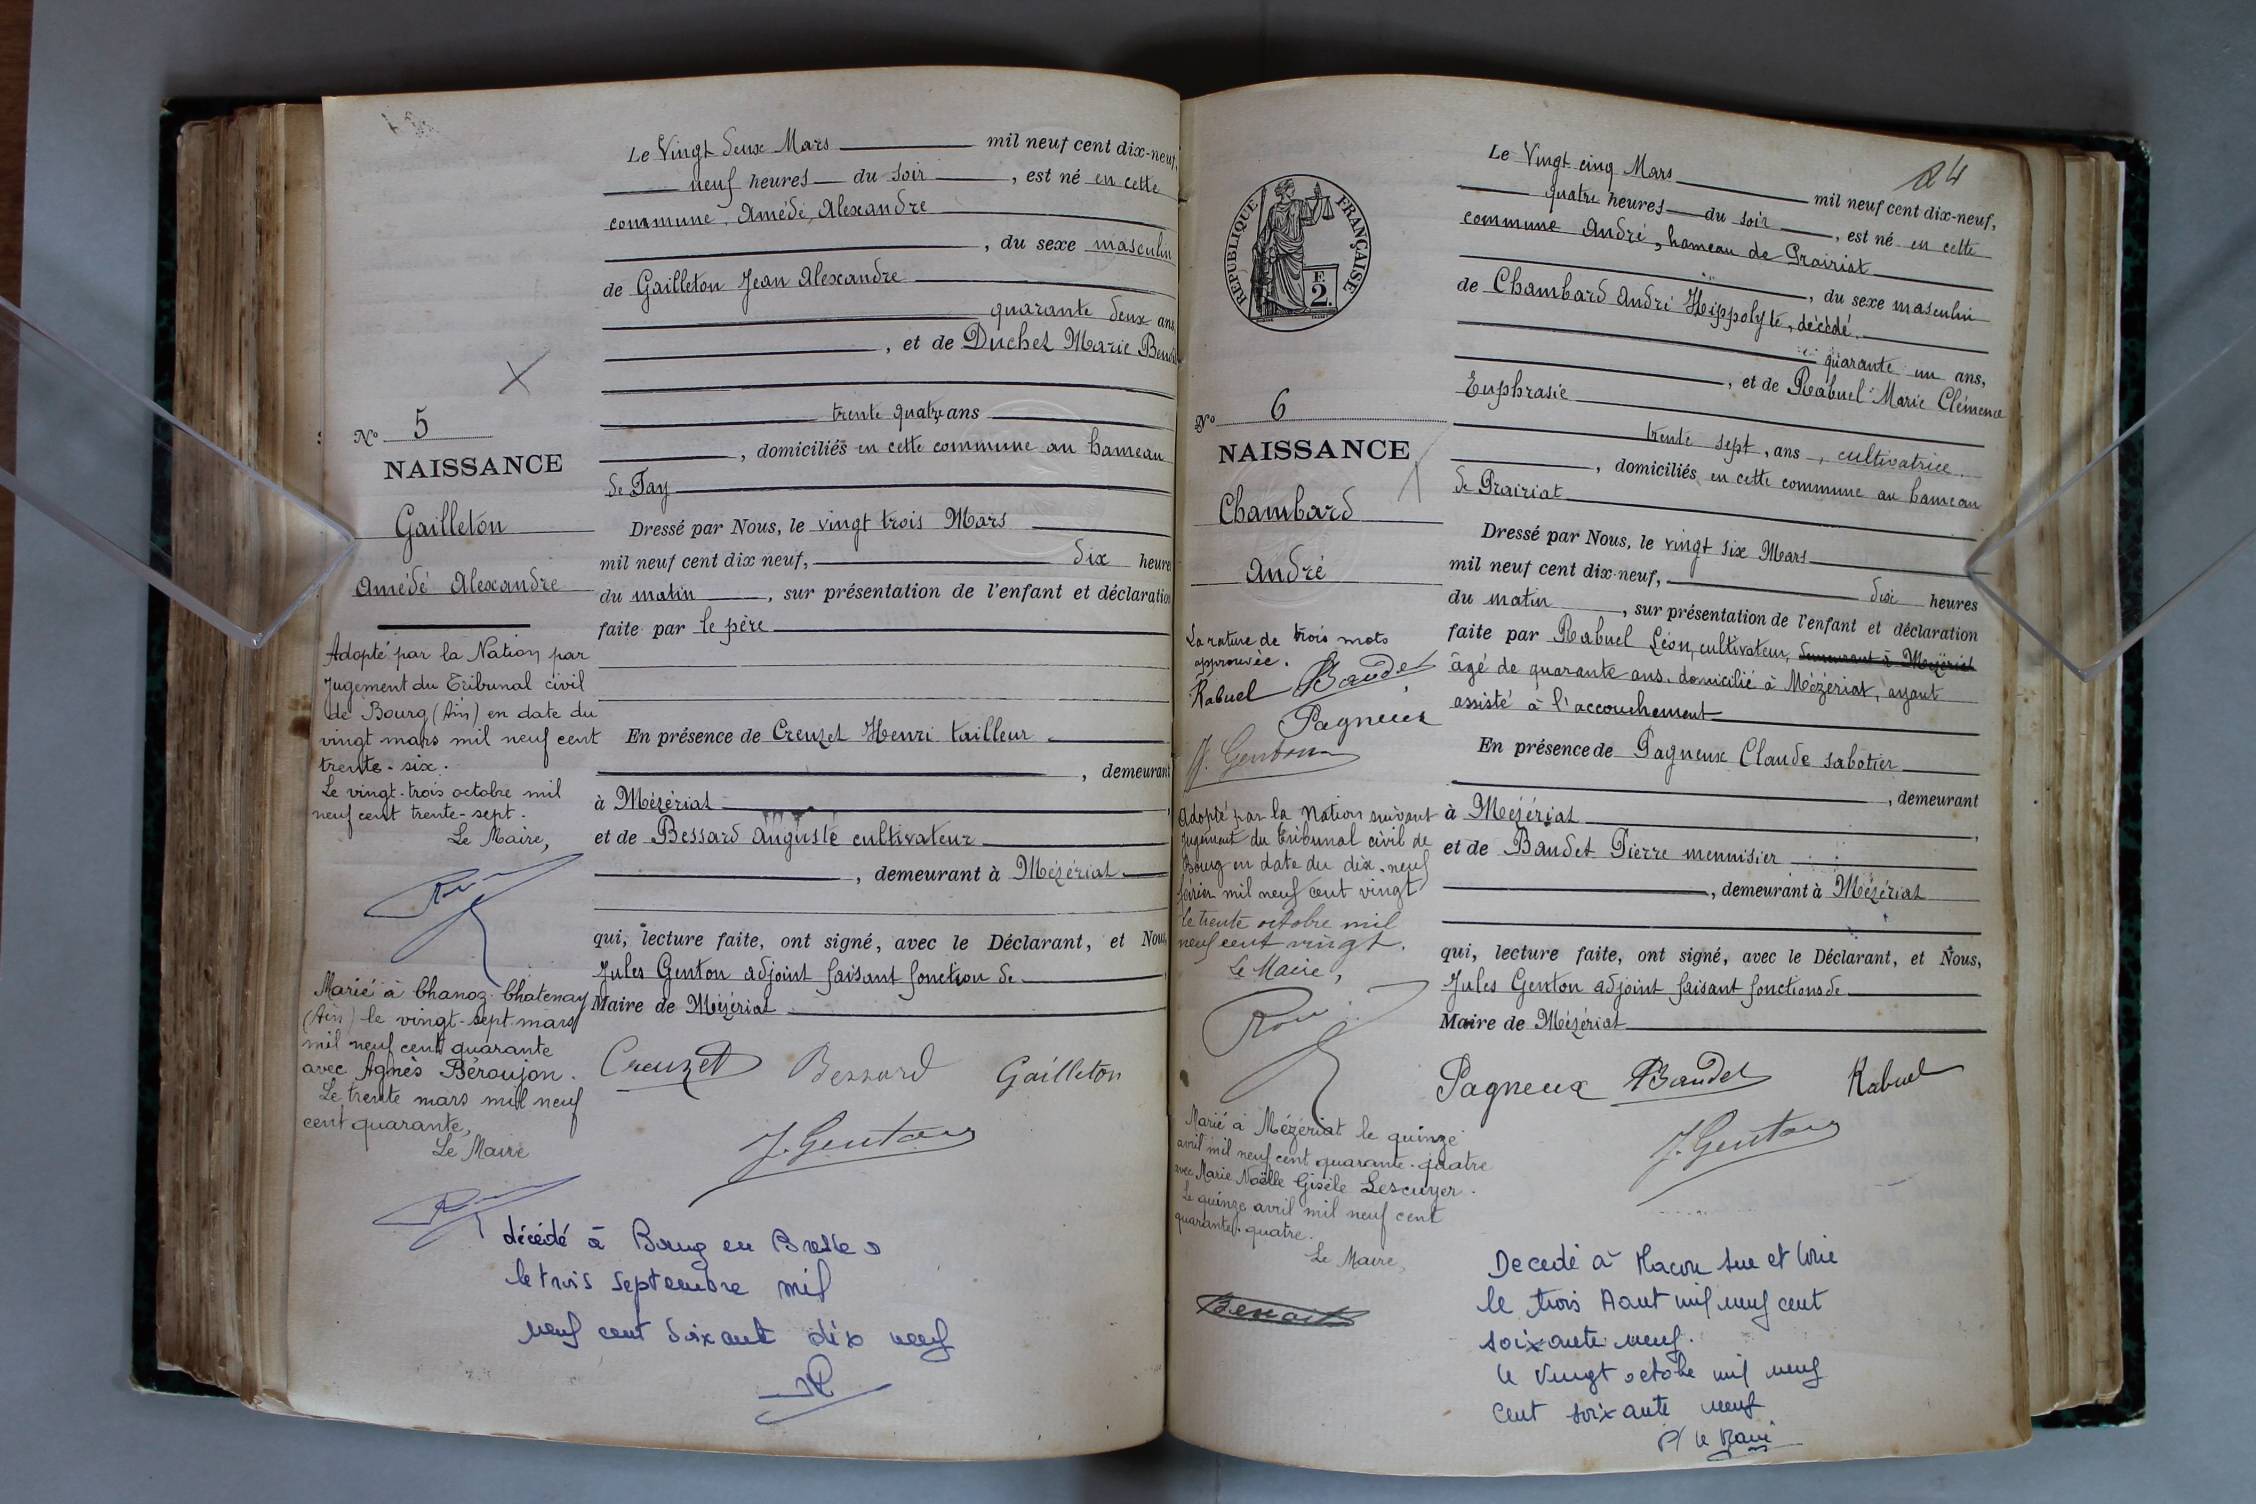 Le Vingt deux Mars mil neuf cent dix-neuf,
neuf heures du soir, est né en cette
commune, Amédé, Alexandre
, du sexe masculin
de Gailleton Jean Alexandre
quarante deux ans,
, et de Duchet Marie
trente quatre ans
, domiciliés en cette commune au hameau
de Tay
Dressé par Nous, le vingt trois Mars
mil neuf cent dix neuf, dix heures
du matin, sur présentation de l'enfant et déclaration
faite par le père
En présence de Creuzet Henri tailleur
, demeurant
à Mézériat
et de Bessard Auguste cultivateur
, demeurant à Mézériat
qui, lecture faite, ont signé, avec le Déclarant, et Nous,
Jules Genton adjoint faisant fonction de
Maire de Mézériat
Creuzet Bessard Gailleton
J. Genton
N° 5
NAISSANCE
Gailleton
Amédé Alexandre
Adopté par la Nation par
Jugement du Tribunal civil
de Bourg (Ain) en date du
vingt mars mil neuf cent
trente-six.
Le vingt-trois octobre mil
neuf cent trente-sept.
Le Maire,
Marié à Chanoz-Chatenay
(Ain) le vingt-sept mars
mil neuf cent quarante
avec Agnès Béroujon.
Le trente mars mil neuf
cent quarante,
Le Maire
décédé à Bourg en Bresse
le trois septembre mil
neuf cent soixante dix neuf
24
Le Vingt cinq Mars mil neuf cent dix-neuf,
quatre heures du soir, est né en cette
commune André, hameau de Prairiat
, du sexe masculin
de Chambard André Hippolyte, décédé.
quarante un ans,
, et de Rabuel Marie Clémence
Euphrasie
trente sept, ans, cultivatrice
, domiciliés en cette commune au hameau
de Prairiat
Dressé par Nous, le vingt six Mars
mil neuf cent dix-neuf, dix heures
du matin, sur présentation de l'enfant et déclaration
faite par Rabuel Léon, cultivateur, demeurant à Mézériat
âgé de quarante ans, domicilié à Mézériat, ayant
assisté à l'accouchement
En présence de Pagneux Claude sabotier
, demeurant
à Mézériat
et de Baudet Pierre menuisier
, demeurant à Mézériat
qui, lecture faite, ont signé, avec le Déclarant, et Nous,
Jules Genton adjoint faisant fonctions de
Maire de Mézériat
Pagneux Baudet Rabuel
J. Genton
REPUBLIQUE FRANÇAISE
F.
2.
N° 6
NAISSANCE
Chambard
André
La rature de trois mots
approuvée.
Rabuel Baudet
Pagneux
J. Genton
Adopté par la Nation suivant
Jugement du Tribunal civil de
Bourg en date du dix-neuf
février mil neuf cent vingt
Le trente octobre mil
neuf cent vingt.
Le Maire,
Marié à Mézériat le quinze
avril mil neuf cent quarante-quatre
avec Marie Noëlle Gisèle Lescuyer.
Le quinze avril mil neuf cent
quarante-quatre.
Le Maire,
Benoit
Decedé à Macon
le trois Aout mil neuf cent
soixante neuf.
le vingt octobre mil neuf
cent soixante neuf
P/ le Maire